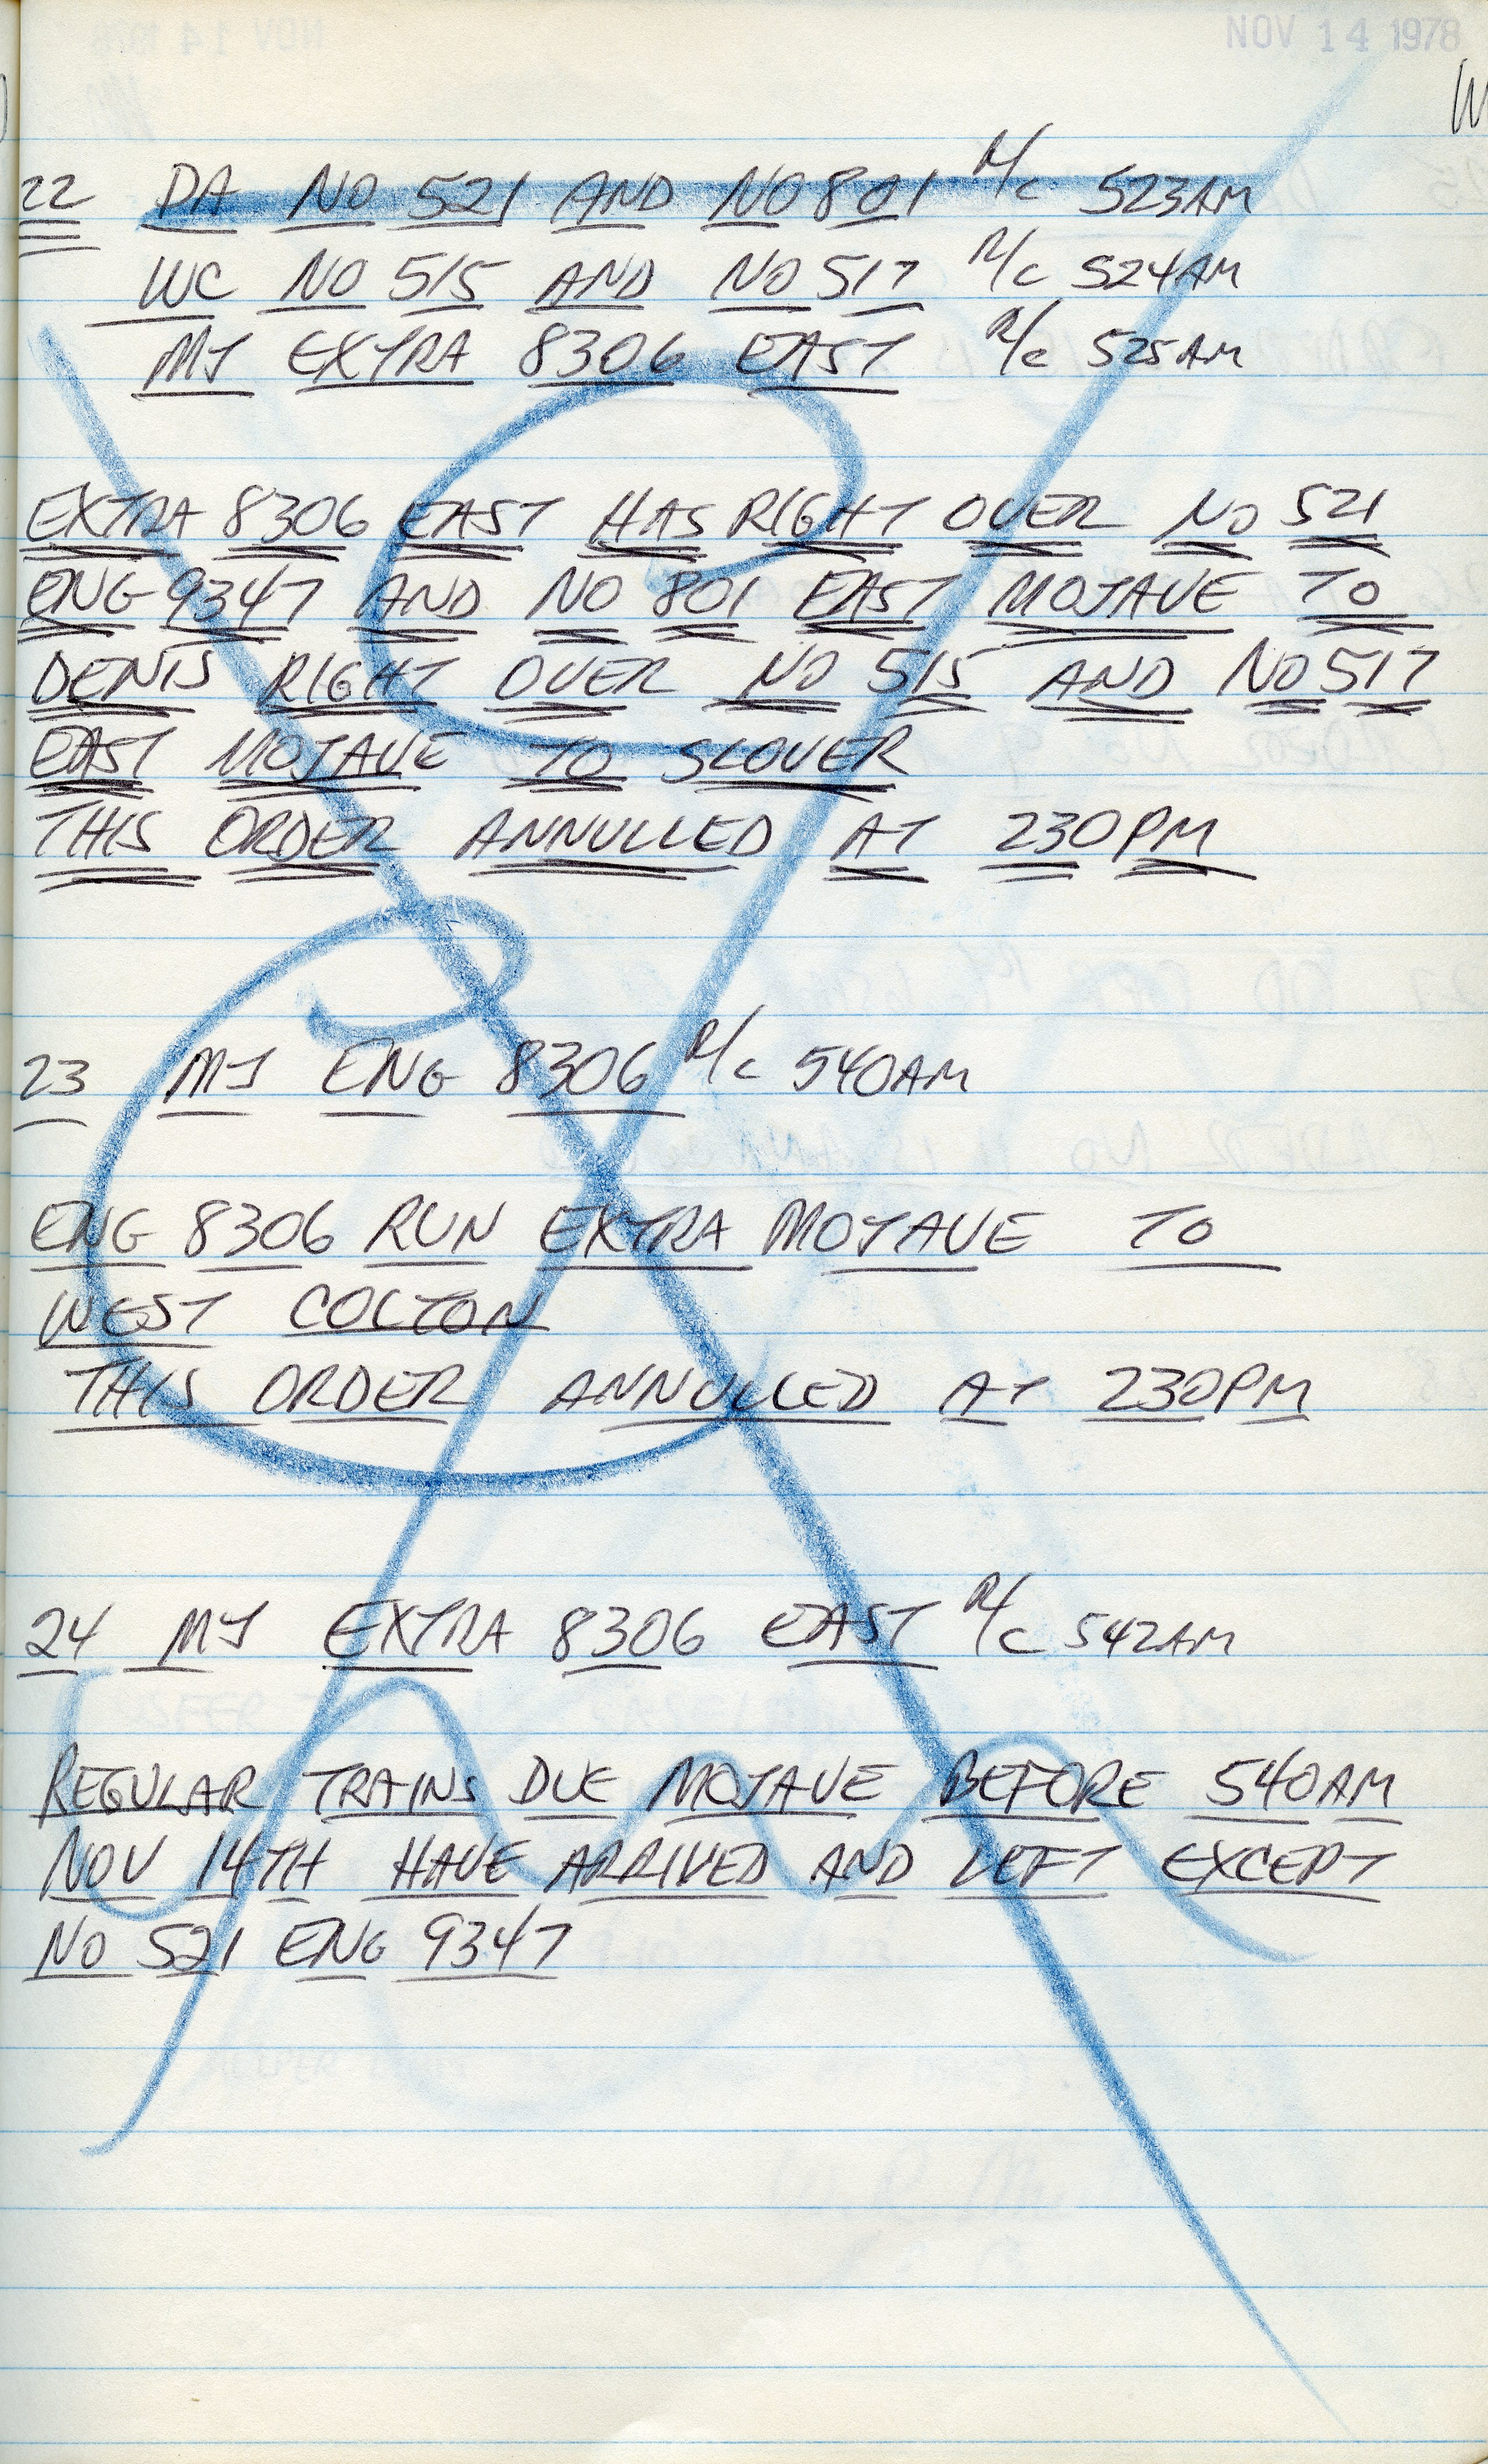 NOV 14 1978
22 DA NO 521 AND NO 801 M/C 523AM
WC NO 515 AND NO 517 M/C 524AM
MJ EXTRA 8306 EAST M/C 525AM
EXTRA 8306 EAST HAS RIGHT OVER NO 521
ENG 9347 AND NO 801 EAST MOJAVE TO
DENIS RIGHT OVER NO 515 AND NO 517
EAST MOJAVE TO SLOVER
THIS ORDER ANNULLED AT 230PM
23 MJ ENG 8306 M/C 540AM
ENG 8306 RUN EXTRA MOJAVE TO
WEST COLTON
THIS ORDER ANNULLED AT 230PM
24 MJ EXTRA 8306 EAST M/C 542AM
REGULAR TRAINS DUE MOJAVE BEFORE 540AM
NOV 14TH HAVE ARRIVED AND LEFT EXCEPT
NO 521 ENG 9347